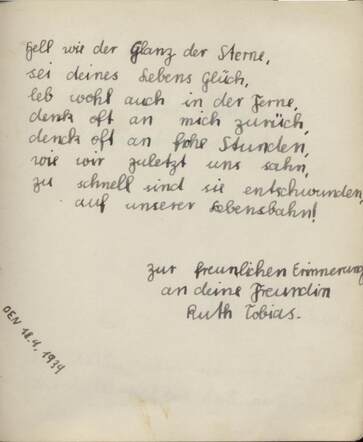 Hell wie der Glanz der Sterne,
sei deines Lebens Glück,
leb wohl auch in der Ferne,
denk oft an mich zurück,
denck oft an frohe Stunden,
wie wir zuletzt uns sahn,
zu schnell sind sie entschwunden,
auf unserer Lebensbahn!
zur freunlichen Erinnerung
an deine Freundin
Ruth Tobias.
DEN 18.4.1939